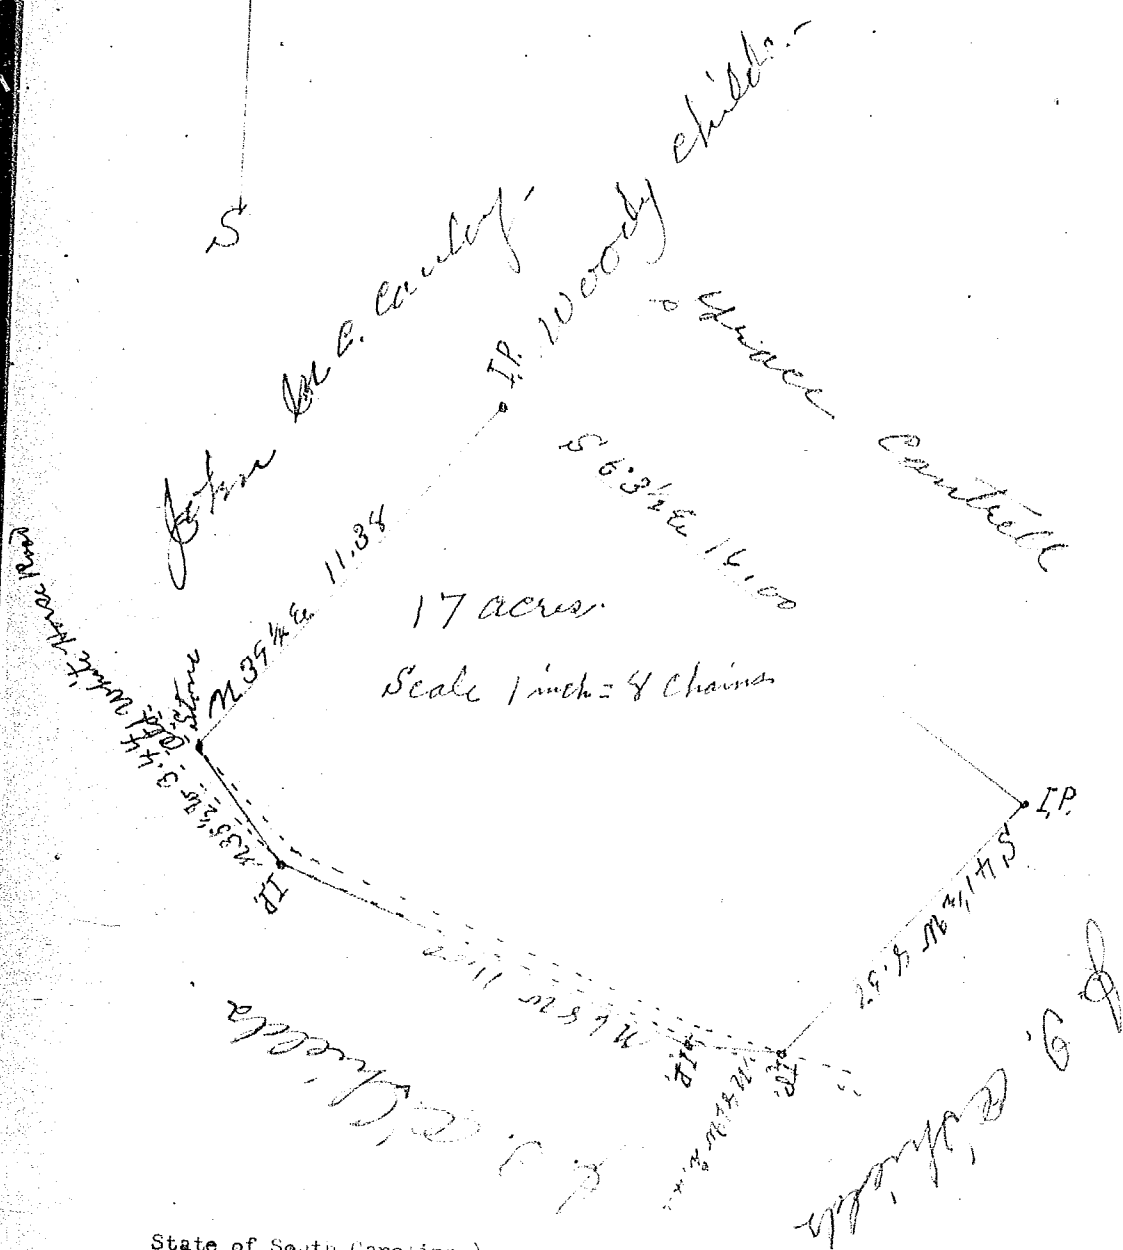 S
John M C. Cauley.
I.P. Woody child.
Grace Cantrell
S 63½ E 16.00
N 39¼ E 11.38
17 acres.
Scale 1 inch = 8 Chains
Stone
Old White Horse Road
N 35½ W 3.44
I.P.
I.P.
S 41½ W 8.57
N 68 W 11.
I.P.
I.P.
N W 2.
J. Shields
J. G. Shields
State of South Carolina )